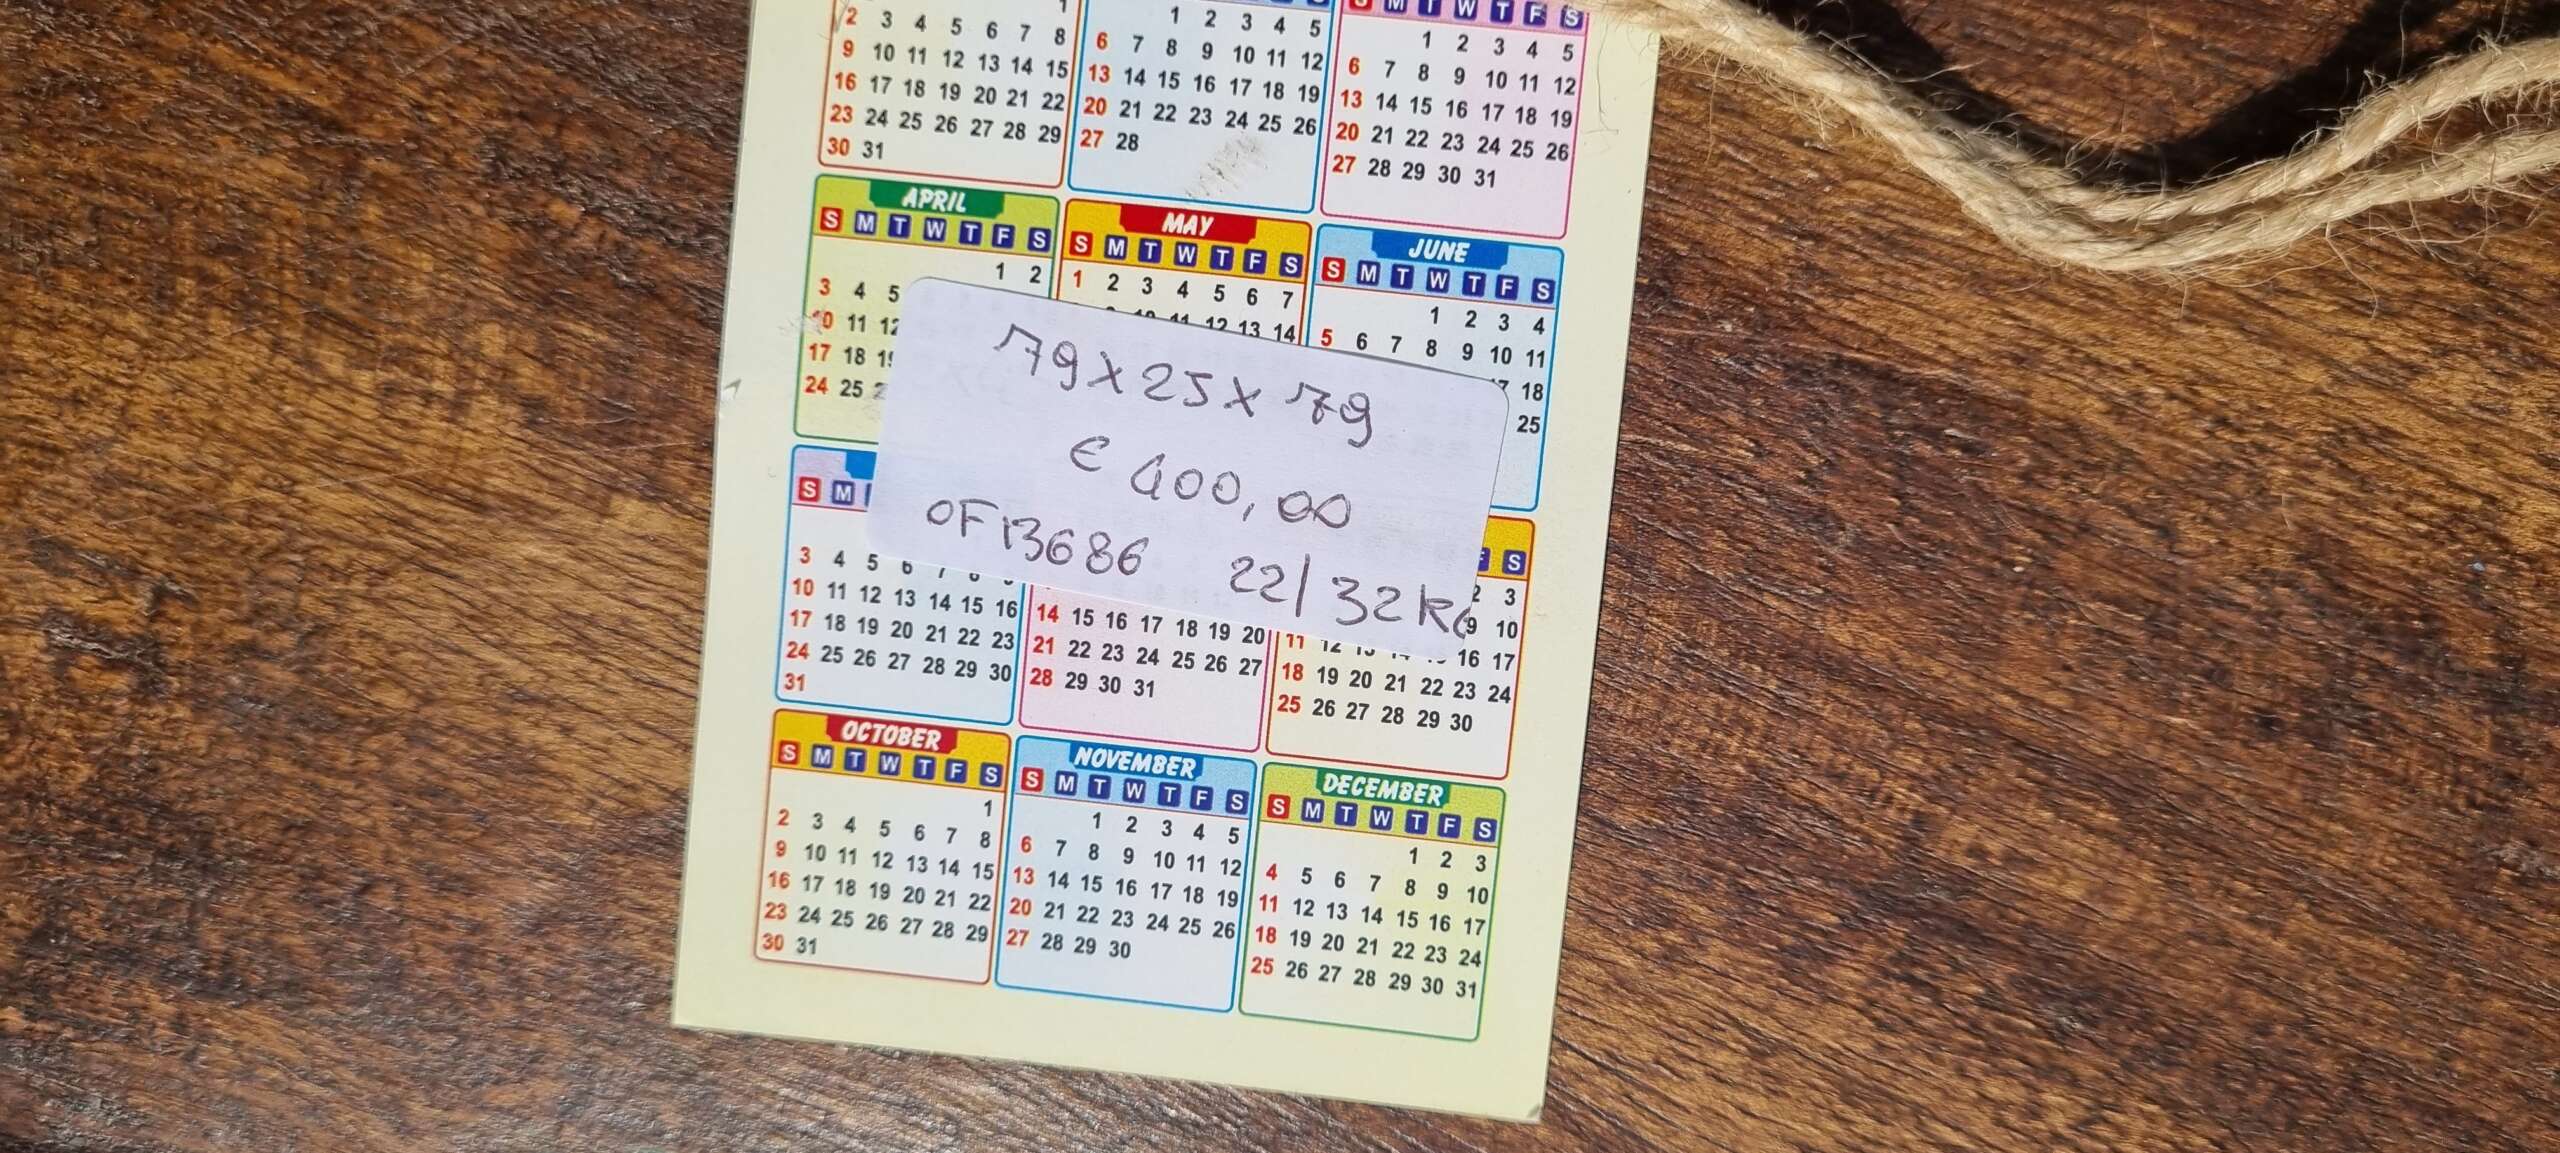 1
2 3 4 5 6 7 8
9 10 11 12 13 14 15
16 17 18 19 20 21 22
23 24 25 26 27 28 29
30 31
1 2 3 4 5
6 7 8 9 10 11 12
13 14 15 16 17 18 19
20 21 22 23 24 25 26
27 28
S M T W T F S
1 2 3 4 5
6 7 8 9 10 11 12
13 14 15 16 17 18 19
20 21 22 23 24 25 26
27 28 29 30 31
APRIL
S M T W T F S
1 2
3 4 5
10 11 12
17 18
24 25
MAY
S M T W T F S
1 2 3 4 5 6 7
10 11 12 13 14
JUNE
S M T W T F S
1 2 3 4
5 6 7 8 9 10 11
18
25
79 x 25 x 79
€ 400,00
OF13686 22/32 KG
S M
3 4 5 6 7 8 9
10 11 12 13 14 15 16
17 18 19 20 21 22 23
24 25 26 27 28 29 30
31
14 15 16 17 18 19 20
21 22 23 24 25 26 27
28 29 30 31
F S
2 3
9 10
11 12 13 14 15 16 17
18 19 20 21 22 23 24
25 26 27 28 29 30
OCTOBER
S M T W T F S
1
2 3 4 5 6 7 8
9 10 11 12 13 14 15
16 17 18 19 20 21 22
23 24 25 26 27 28 29
30 31
NOVEMBER
S M T W T F S
1 2 3 4 5
6 7 8 9 10 11 12
13 14 15 16 17 18 19
20 21 22 23 24 25 26
27 28 29 30
DECEMBER
S M T W T F S
1 2 3
4 5 6 7 8 9 10
11 12 13 14 15 16 17
18 19 20 21 22 23 24
25 26 27 28 29 30 31